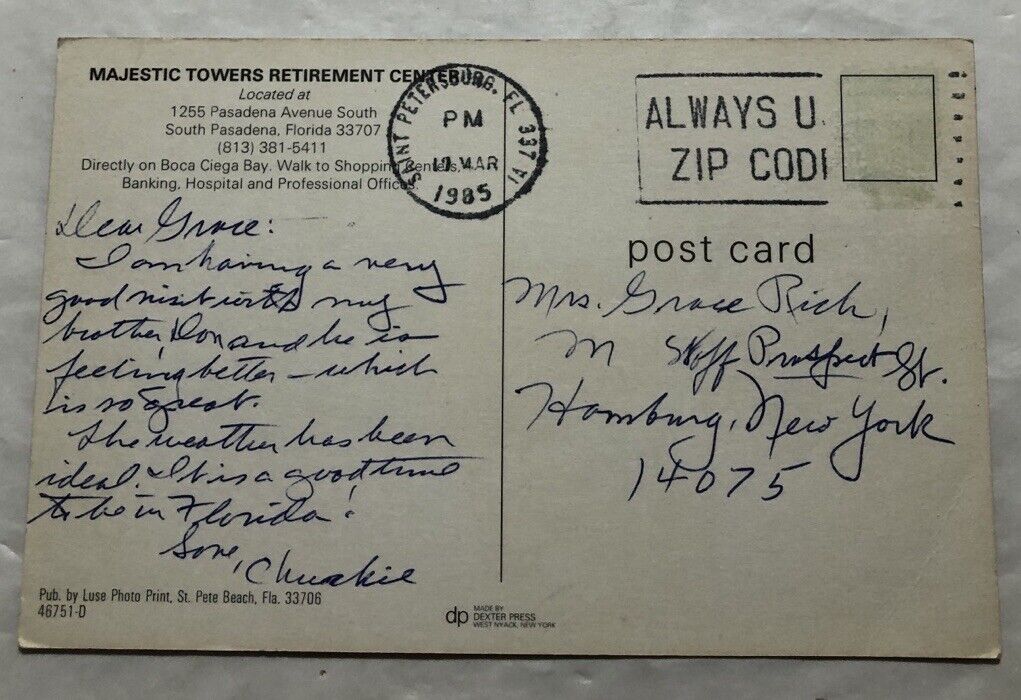 MAJESTIC TOWERS RETIREMENT CENTER
Located at
1255 Pasadena Avenue South
South Pasadena, Florida 33707
(813) 381-5411
Directly on Boca Ciega Bay. Walk to Shopping Centers,
Banking, Hospital and Professional Offices.
SAINT PETERSBURG, FL 337
PM
MAR
1985
ALWAYS U.
ZIP COD
post card
Dear Grace:
I am having a very
good visit with my
brother, Don and he is
feeling better – which
is so great.
The weather has been
ideal. It is a good time
to be in Florida!
Love,
Chuckie
Mrs. Grace Rich,
Prospect St.
Hamburg, New York
14075
Pub. by Luse Photo Print, St. Pete Beach, Fla. 33706
46751-D
dp MADE BY
DEXTER PRESS
WEST NYACK, NEW YORK